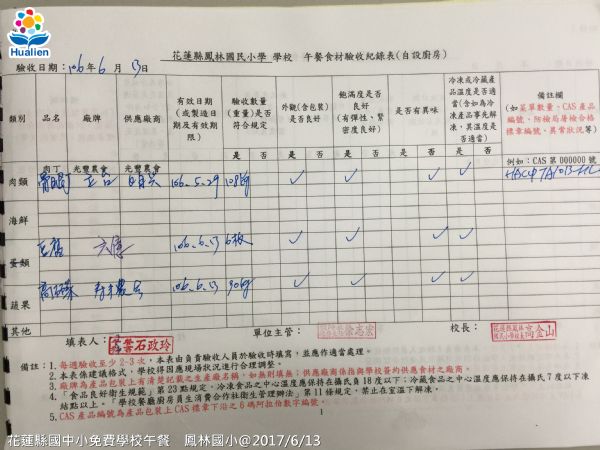 Hualien
花蓮縣鳳林國民小學 學校 午餐食材驗收紀錄表(自設廚房)
驗收日期:106年6月13日
類別 品名 廠牌 供應廠商 有效日期(或製造日期及有效期限) 驗收數量(重量)是否符合規定 外觀(含包裝)是否良好 飽滿度是否良好(有彈性、緊密度良好) 是否有異味 冷凍或冷藏產品溫度是否適當(含如為冷凍產品事先解凍,其溫度是否適當) 備註欄(如菜單數量、CAS產品編號、防檢局屠檢合格標章編號、異常狀況等)
是 否 是 否 是 否 是 否 是 否
肉丁 光豐農會 光豐農會 例如:CAS 第 000000 號
肉類 106.5.29 108kg
海鮮
蛋類 106.6.13 6板
蔬果 106.6.13 30kg
其他
填表人: 營養石政玲 單位主管: 徐志宏 校長: 花蓮縣鳳林國民小學校長
備註:1.每週驗收至少2-3次,本表由負責驗收人員於驗收時填寫,並應作適當處理。
2.本表係建議格式,學校得因應現場狀況進行合理調整。
3.廠牌為產品包裝上有清楚記載之生產廠名稱,如無則填無;供應廠商係指與學校簽約供應食材之廠商。
4.「食品良好衛生規範」第23點規定,冷凍食品之中心溫度應保持在攝氏負18度以下;冷藏食品之中心溫度應保持在攝氏7度以下凍
結點以上。「學校餐廳廚房員生消費合作社衛生管理辦法」第11條規定,禁止在室溫下解凍。
5.CAS產品編號為產品包裝上CAS標章下沿之6碼阿拉伯數字編號。
1
花蓮縣國中小免費學校午餐 鳳林國小@2017/6/13